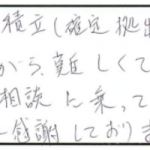 積立し確定拠出
から、難しくて
相談に乗って
感謝しておりま